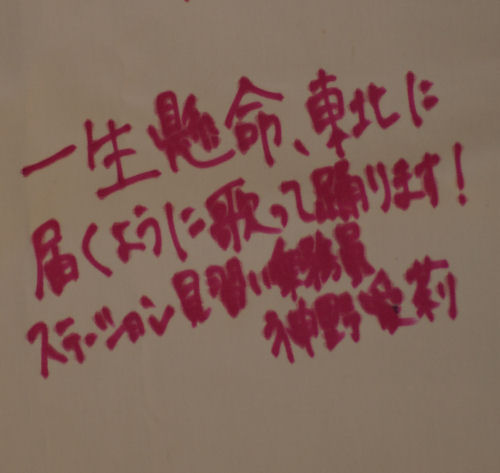 一生懸命、東北に
届くように歌って踊ります!
ステーション見習い乗務員
神野愛莉